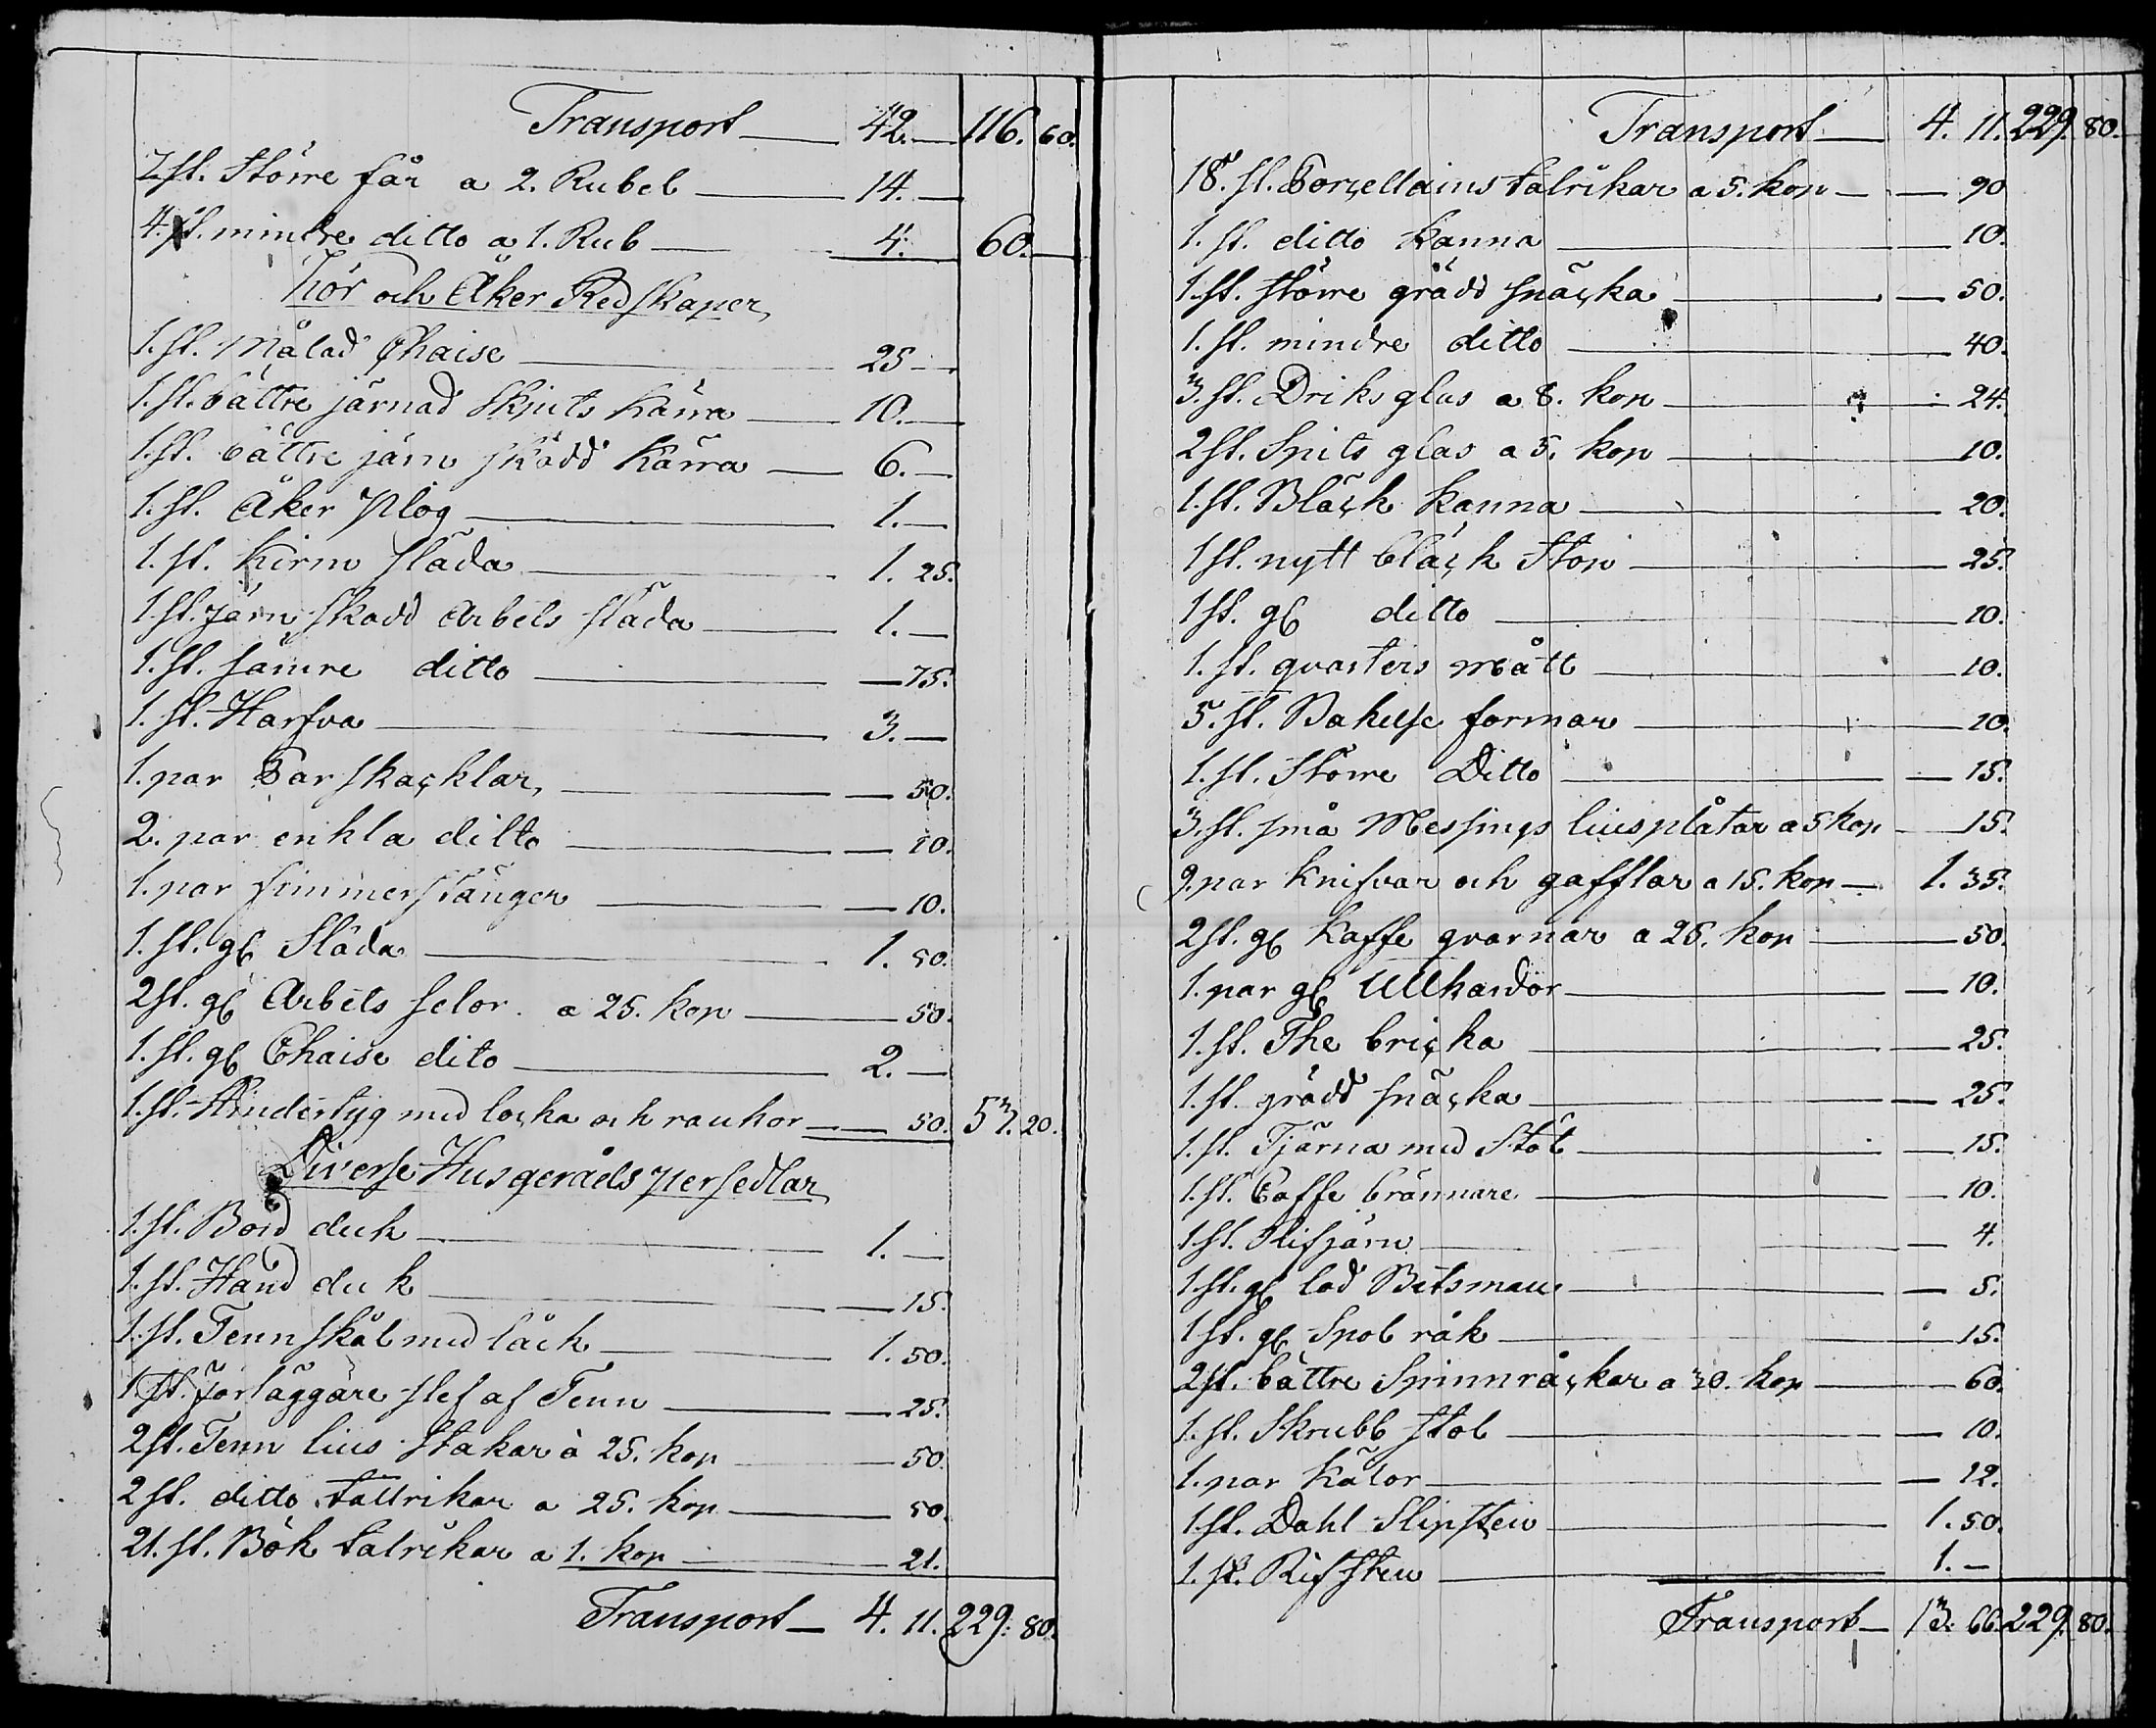 Transport — 42. — 116. 60.
7 st. Större får a 2. Rubel — 14. —
4. st. mindre ditto a 1. Rub — 4. 60. —
Kör och Åker Redskaper
1. st. Målad Chaise — 25 —
1. st. bättre järnad Skjuts Kärra — 10. —
1. st. bättre järn skodd Kärra — 6. —
1. st. Åker plog — 1. —
1. st. Kirm släda — 1. 25.
1. st. järn skodd Arbets släda — 1. —
1. st. sämre ditto — 75.
1. st. Harfva — 3. —
1. par Par skacklar — 50.
2. par enkla ditto — 10.
1. par Simmerstänger — 10.
1. st. gl Släda — 1. 50.
2 st. gl Arbets selor a 25. kop — 50.
1. st. gl Chaise dito — 2. —
1. st. Hindertyg med locka och rankor — 50. 53. 20.
Diverse Husgeråds persedlar
1. st. Bord duk — 1. —
1. st. Hand duk — 15.
1. st. Tenn skål med låck — 1. 50.
1 st. förläggare slef af Tenn — 25.
2 st. Tenn lius stakar à 25. kop — 50.
2 st. ditto tallrikar a 25. kop — 50.
21. st. Bök talrikar a 1. kop — 21.
Transport — 4. 11. 229. 80.
Transport — 4. 11. 229. 80.
18. st. Porcellains talrikar a 5. kop — 90
1. st. ditto Kanna — 10.
1. st. större grädd snäcka — 50.
1. st. mindre ditto — 40.
3. st. Driks glas a 8. kop — 24.
2 st. Spits glas a 5. kop — 10.
1. st. Bläck Kanna — 20.
1 st. nytt bläck Stop — 25.
1 st. gl ditto — 10.
1. st. qvarters mått — 10.
5. st. Bakelse formar — 10.
1. st. Större Ditto — 15.
3. st. små Messings liusplåtar a 5 kop — 15.
9. par Knifvar och gafflar a 15. kop — 1. 35.
2 st. gl Kaffe qvarnar a 25. kop — 50.
1. par gl Ullkardor — 10.
1. st. The bricka — 25.
1. st. grädd snäcka — 25.
1. st. Tjärna med Stöt — 15.
1. st. Caffe brännare — 10.
1 st. Rifjärn — 4.
1 st. gl lod Betsman — 5.
1 st. gl Spol råk — 15.
2 st. bättre Spinnråckar a 30. kop — 60.
1. st. Skrubb stol — 10.
1. par Kälor — 12.
1 st. Dahl Slipsten — 1. 50.
1. st. Rif sten — 1. —
Transport — 13. 66. 229. 80.